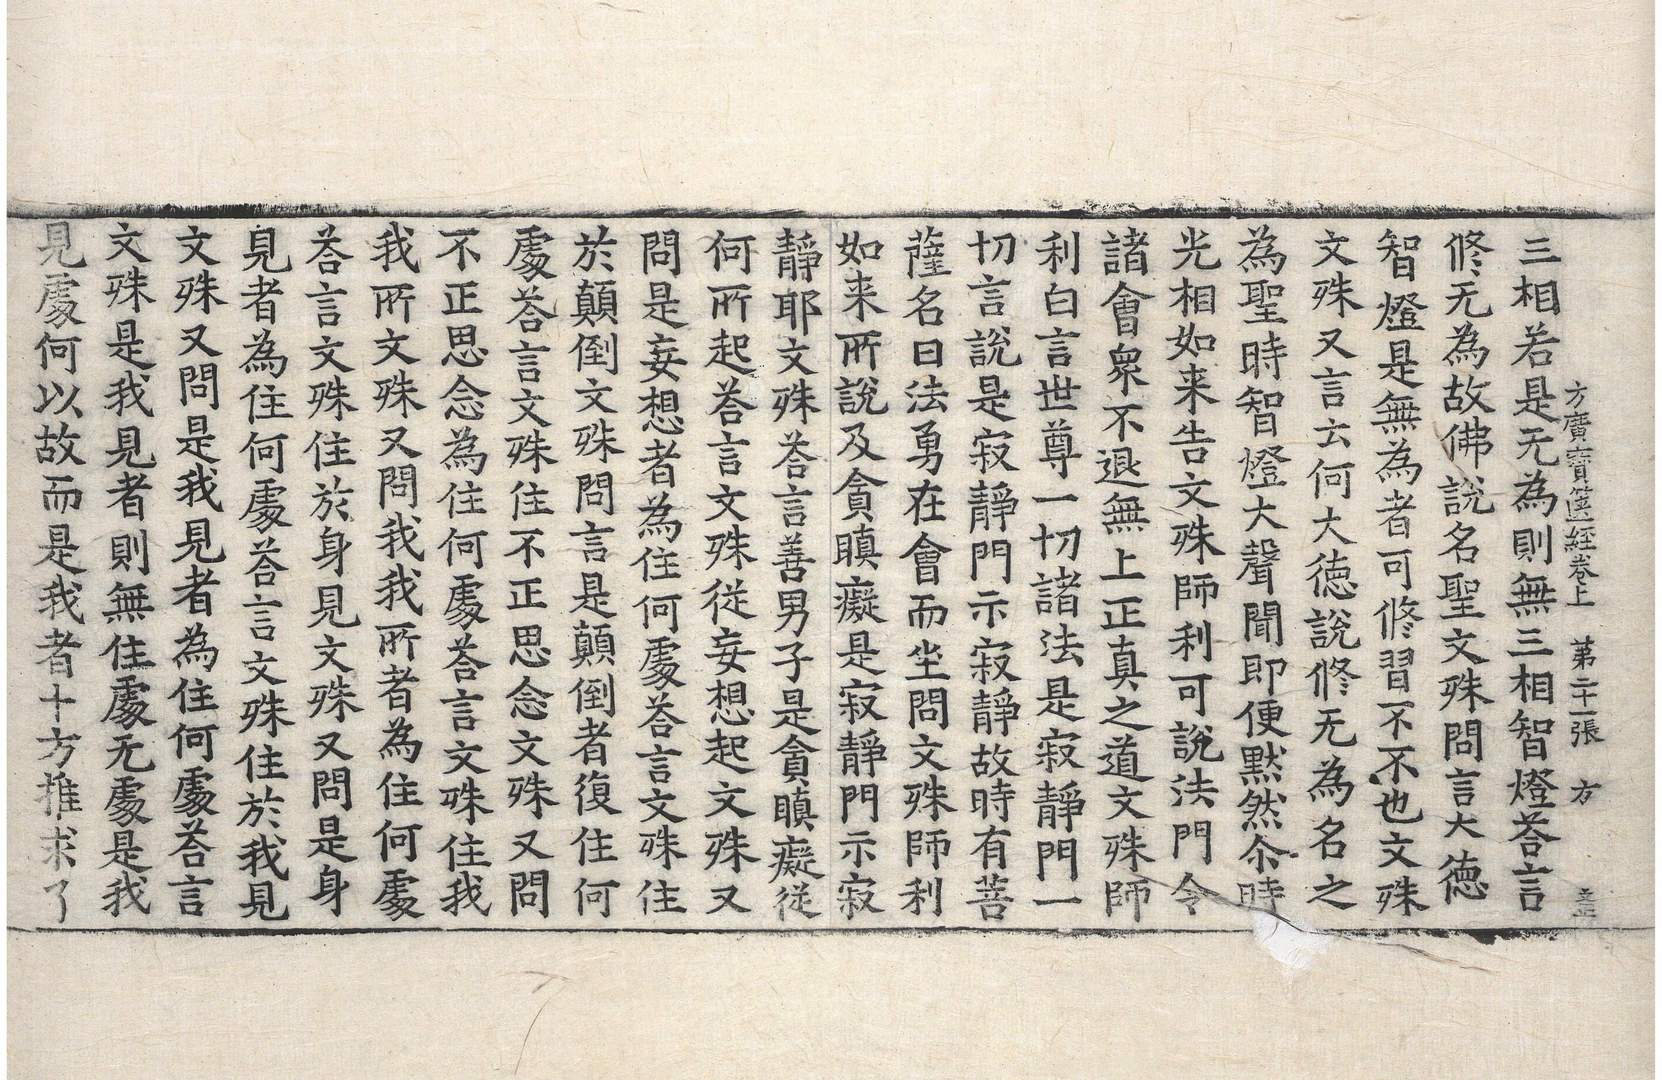 方廣寳篋經卷上　第二十一張　方
三相若是无為則無三相智燈荅言
修无為故佛說名聖文殊問言大徳
智燈是無為者可修習不不也文殊
文殊又言云何大徳說修无為名之
為聖時智燈大聲聞即便默然尒時
光相如来告文殊師利可說法門令
諸會衆不退無上正真之道文殊師
利白言世尊一切諸法是寂靜門一
切言說是寂靜門示寂靜故時有菩
薩名曰法勇在會而坐問文殊師利
如来所說及貪瞋癡是寂靜門示寂
靜耶文殊荅言善男子是貪瞋癡従
何所起荅言文殊従妄想起文殊又
問是妄想者為住何處荅言文殊住
於顛倒文殊問言是顛倒者復住何
處荅言文殊住不正思念文殊又問
不正思念為住何處荅言文殊住我
我所文殊又問我我所者為住何處
荅言文殊住於身見文殊又問是身
見者為住何處荅言文殊住於我見
文殊又問是我見者為住何處荅言
文殊是我見者則無住處无處是我
見處何以故而是我者十方推求了